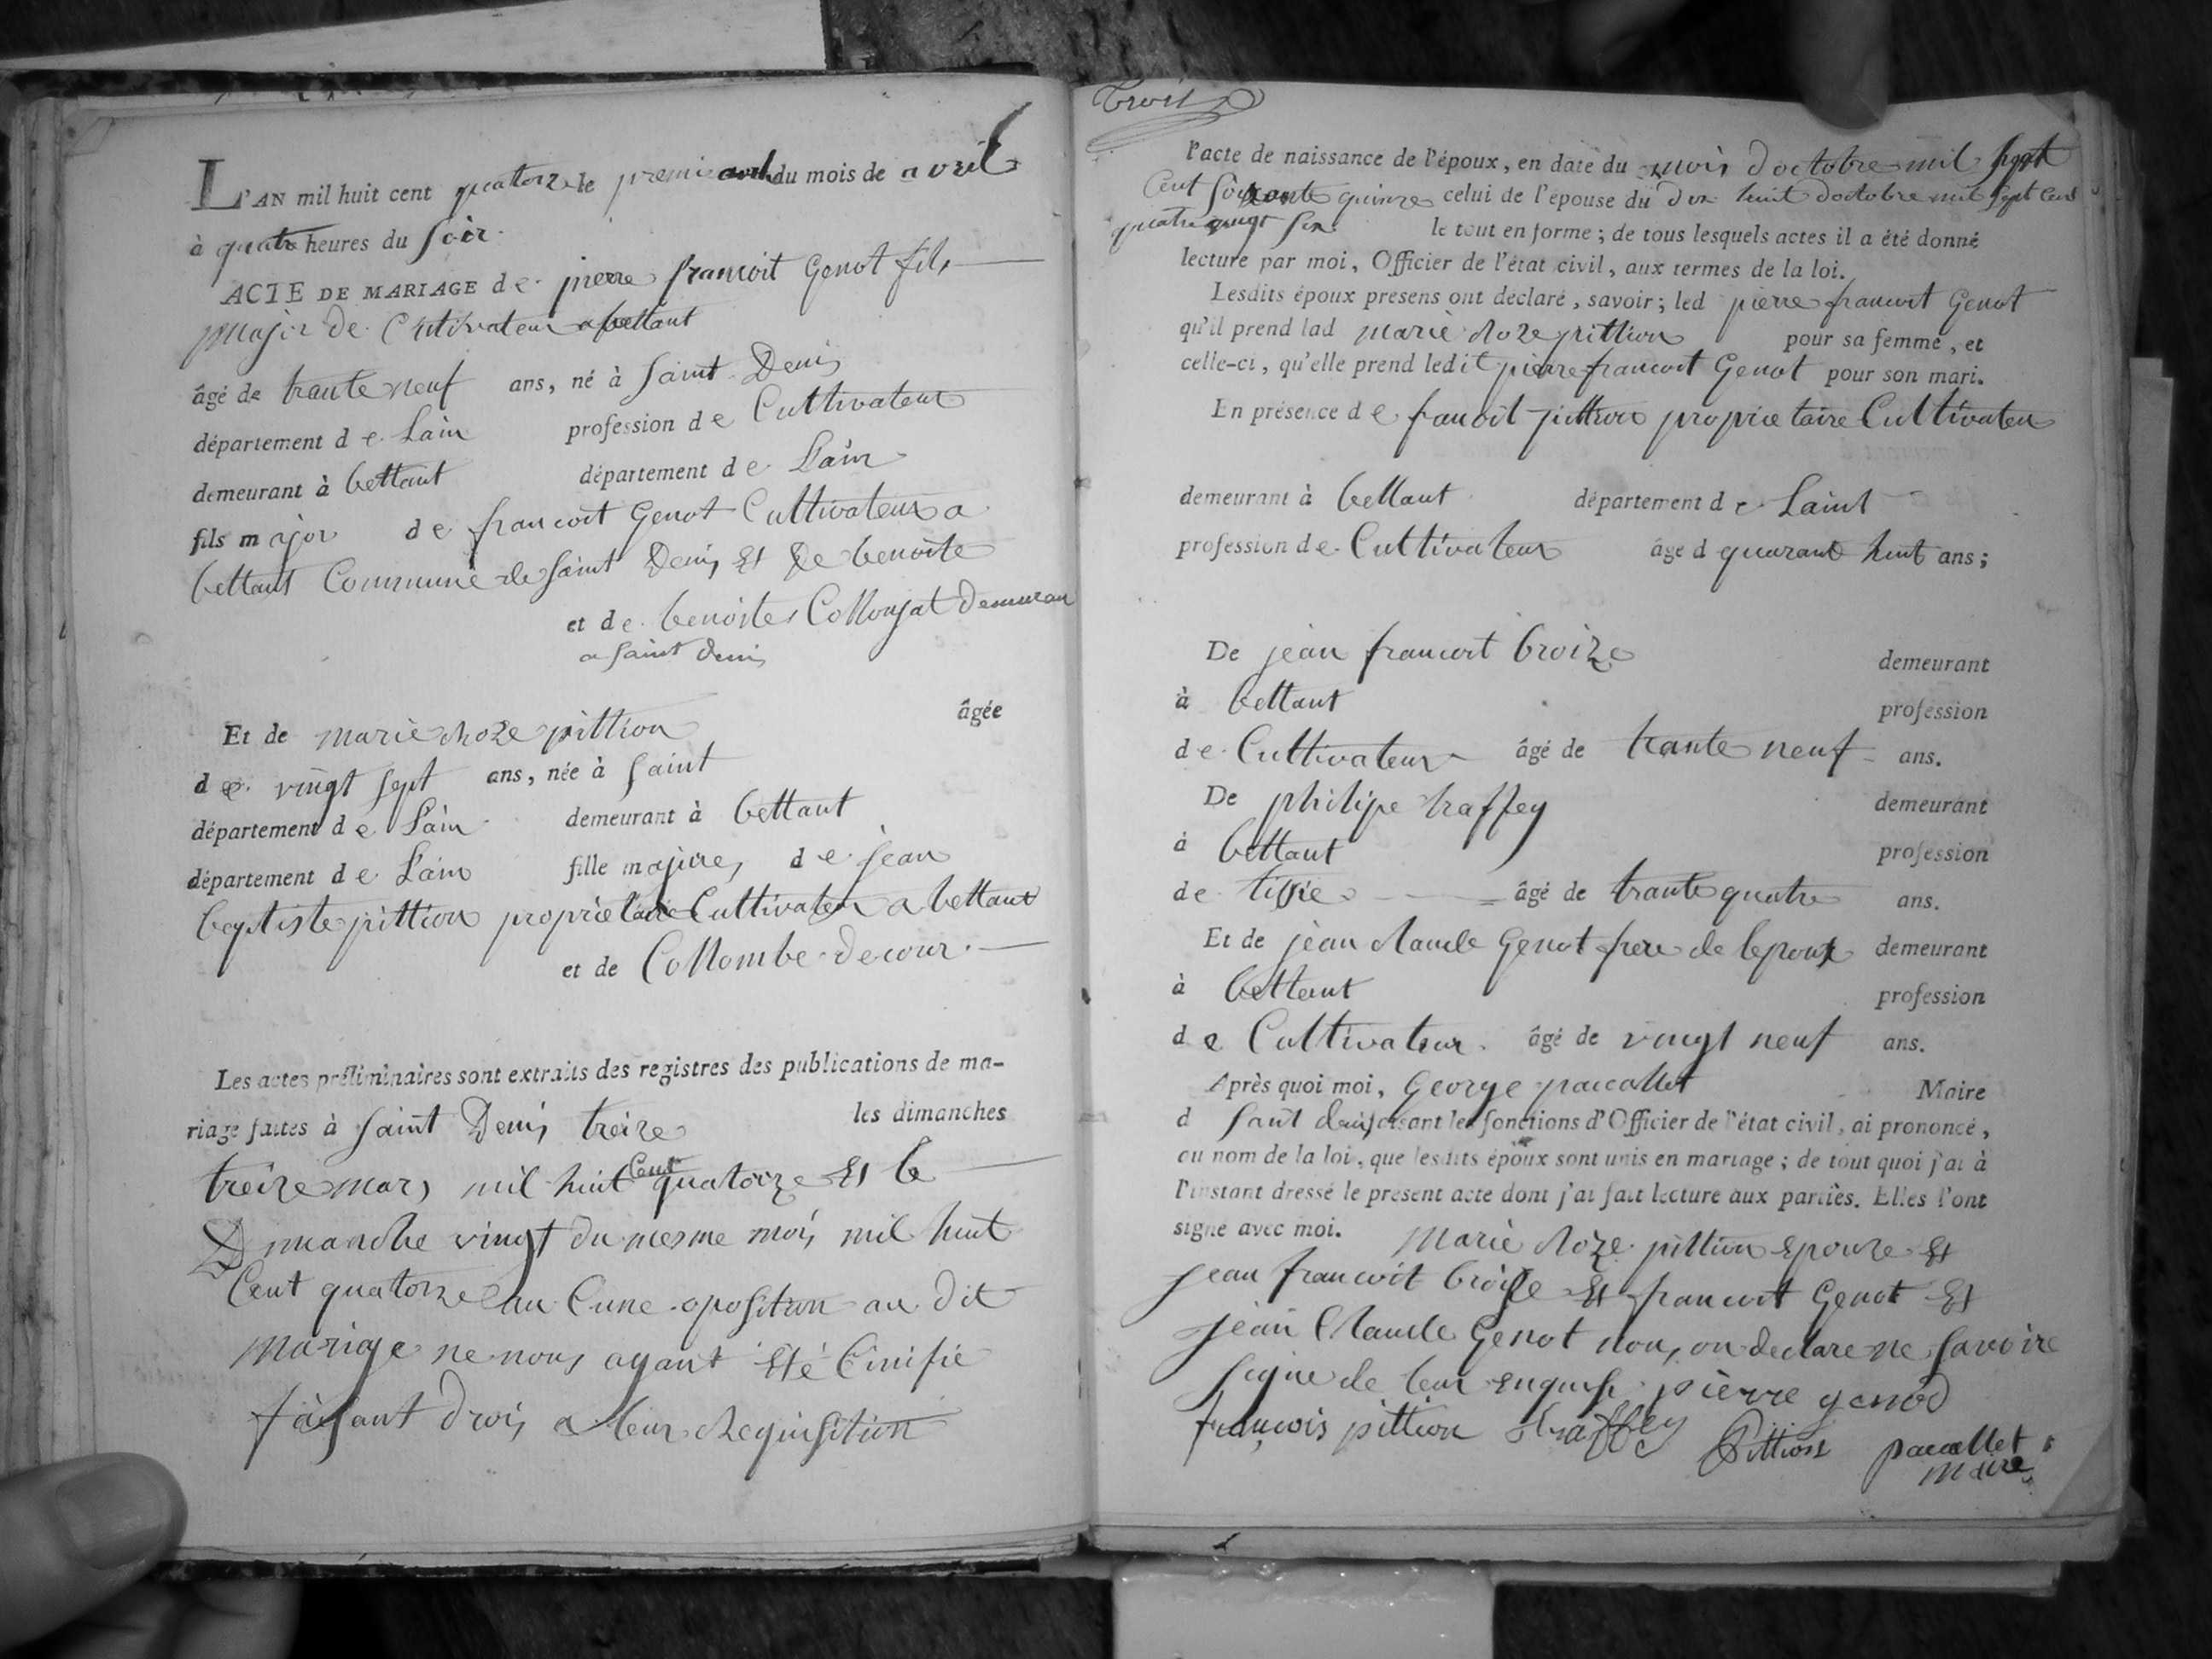 L'AN mil huit cent quatorze le premie avril du mois de avril
à quatre heures du soir.
ACTE DE MARIAGE de pierre francoit Genot fils
major de Cultivateur a bettant
âgé de trante neuf ans, né à Saint Denis
département de Lain profession de Cultivateur
demeurant à bettant département de Lain
fils major de francoit Genot Cultivateur a
bettant Commune de Saint Denis Et De benoite
et de benoite Collonjat demeuran
a Saint Denis
Et de marie Roze pittion âgée
de vingt sept ans, née à Saint
département de Lain demeurant à bettant
département de Lain fille majure de jean
baptiste pittion proprietaire Cultivateur a bettant
et de Collombe decour
Les actes préliminaires sont extraits des registres des publications de ma-
riage faites à Saint Denis treize les dimanches
treize mars mil huit Cent quatorze Et le
Dimanche vingt du mesme mois mil huit
Cent quatorze au Cune oposition au dit
mariage ne nous ayant Eté Cinifié
faisant Drois a leur Requisition
Trois
l'acte de naissance de l'époux, en date du mois doctobre mil sept
Cent soixante quinze celui de l'épouse du dix huit doctobre mil sept Cent
quatre vingt six le tout en forme ; de tous lesquels actes il a été donné
lecture par moi, Officier de l'état civil, aux termes de la loi.
Lesdits époux présens ont déclaré, savoir ; led pierre francoit Genot
qu'il prend lad marie Roze pittion pour sa femme, et
celle-ci, qu'elle prend ledit pierre francoit Genot pour son mari.
En présence de francoit pittion proprietaire Cultivateu
demeurant à bettant département de Laint
profession de Cultivateur âgé d quarante huit ans ;
De jean francoit broize demeurant
à bettant profession
de Cultivateur âgé de trante neuf ans.
De philipe traffey demeurant
à bettant profession
de tissie âgé de trante quatre ans.
Et de jean Claude Genot frere de lepoux demeurant
à bettant profession
de Cultivateur âgé de vingt neuf ans.
Après quoi moi, George pacallet Maire
d Saint denis faisant les fonctions d'Officier de l'état civil, ai prononcé,
au nom de la loi, que lesdits époux sont unis en mariage ; de tout quoi j'ai à
l'instant dressé le présent acte dont j'ai fait lecture aux parties. Elles l'ont
signé avec moi. Marie Roze pittion Epouze Et
jean francoit broize Et francoit Genot Et
jean Claude Genot nous on declare ne savoire
signe de leur enquis pierre genod
françois pittion traffey Pittion pacallet
maire